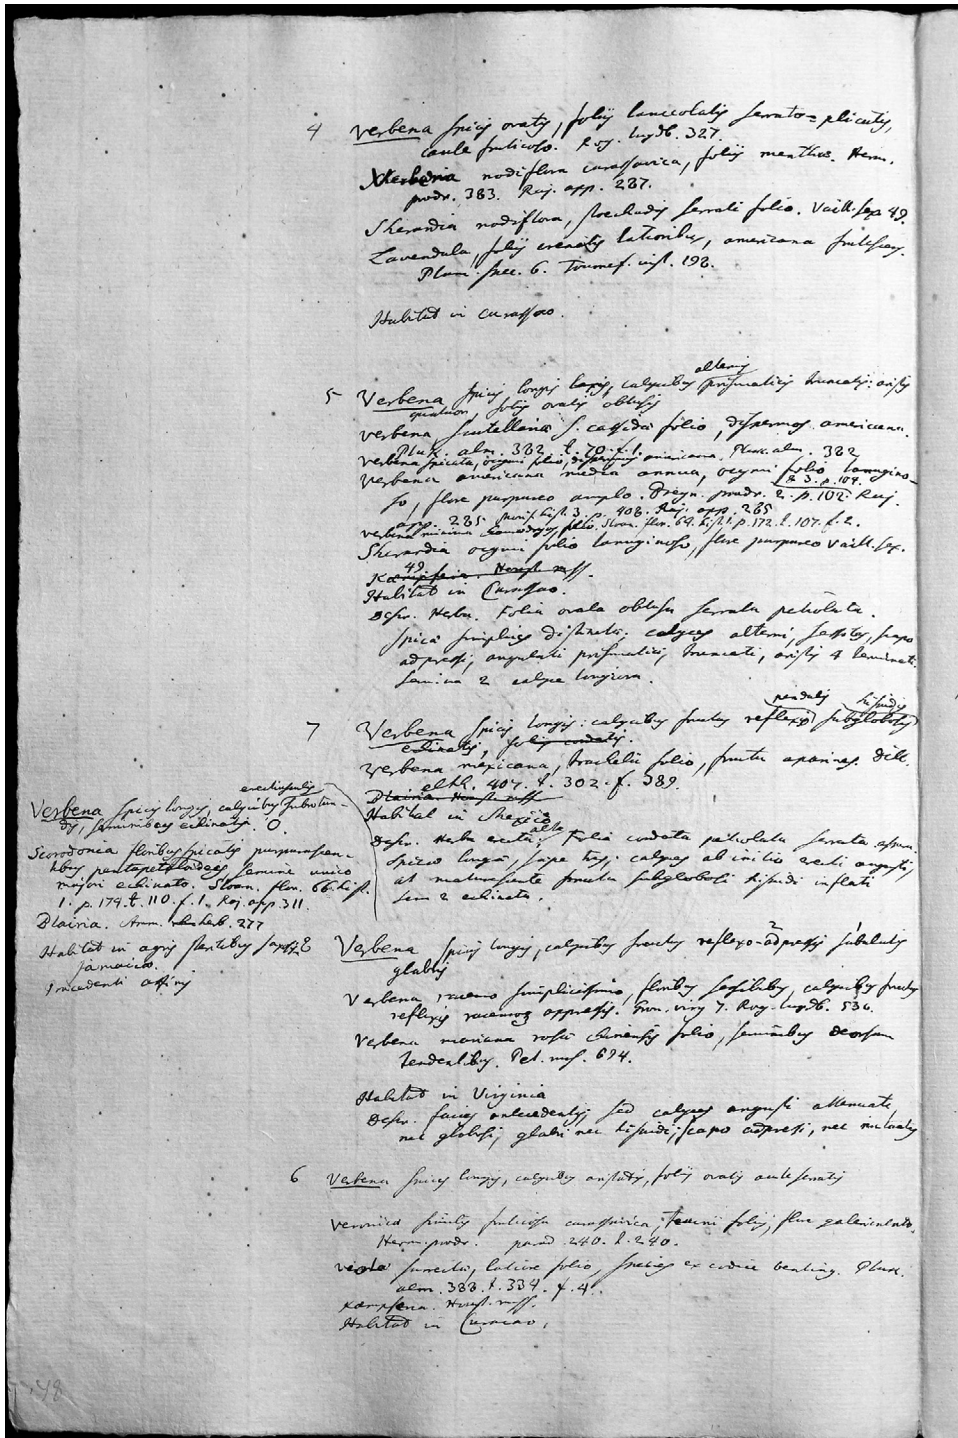 4 Verbena spicis ovatis, foliis lanceolatis serrato-plicatis,
caule fruticoso. Roy. lugdb. 327.
Verbena nodiflora curassavica, foliis menthae. Herm.
prodr. 383. Raj. app. 287.
Sherardia nodiflora, stoechadis serrati folio. Vaill. sex 49.
Lavendula, foliis crenatis latioribus, americana frutescens.
Plum. spec. 6. Tournef. inst. 198.
Habitat in curassao.
alternis
5 Verbena spicis longis laxis, calycibus prismaticis truncatis: aristis
quatuor, foliis ovatis obtusis
Verbena scutellariae s. cassidae folio, dispermos americana.
Pluk. alm. 382. t. 70. f. 1.
Verbena spicata, ocymi folio, dispermos americana. Pluk. alm. 382
Verbena americana media annua, ocymi folio lanugino-
& 3. p. 104.
so, flore purpureo amplo. Breyn. prodr. 2. p. 102. Raj.
app. 285. Moris. hist. 3. p. 408. Raj. app. 285
Verbena minima chamaedryos folio. Sloan. flor. 64. hist. 1. p. 172. t. 107. f. 2.
Sherardia ocymi folio lanuginoso, flore purpureo Vaill. sex.
49.
Kaempferia. Houst. mss.
Habitat in Curassao.
Descr. Herba. Folia ovata obtusa serrata petiolata.
Spica simplices distinctae; calyces alterni, sessiles, scapo
adpressi, angulati prismatici, truncati, aristis 4 terminati.
Semina 2 calyce longiora.
pendulis hispidis
7 Verbena spicis longis: calycibus fructus reflexis subglobosis
echinatis, foliis cordatis.
Verbena mexicana, trachelii folio, fructu aparines. Dill.
elth. 407. t. 302. f. 389.
Blairia. Houst. mss.
Habitat in Mexico
alta
Descr. Herba erecta; Folia cordata petiolata serrata aspera.
Spicae longae, saepe tres; calyces ab initio erecti angusti,
at maturescente fructu subglobosi hispidi inflati
sem 2 echinata.
erectiusculis
Verbena spicis longis, calycibus subrotun-
dis, seminibus echinatis. O.
Scorodonia floribus spicatis purpurascen-
tibus pentapetaloideis semine unico
majori echinato. Sloan. flor. 66. hist.
1. p. 174. t. 110. f. 1. Raj. app. 311.
Blairia. Amm. herb. 277
Habitat in agris
jamaica.
Praecedenti affinis
Verbena spicis longis, calycibus fructus reflexo-adpressis subulatis
glabris
Verbena, racemo simplicissimo, floribus sessilibus, calycibus fructus
reflexis racemoq appressis. Gron. virg 7. Roy. lugdb. 536.
Verbena mariana rosae chinensis folio, seminibus deorsum
tendentibus. Pet. mus. 694.
Habitat in Virginia
Descr. facies antecedentis, sed calyces angusti attenuati,
nec globosi, glabri nec hispidi; scapo adpressi, nec nutantes
6 Verbena spicis longis, calycibus aristatis, foliis ovatis acute serratis
Veronicae similis fruticosa curassavica; teucrii foliis, flore galericulato.
Herm. prodr. parad. 240. t. 240.
surrectae, latiore folio, species ex codice benting. Pluk.
alm. 383. t. 334. f. 4.
Kaempfera. Houst. mss.
Habitat in Curacao.